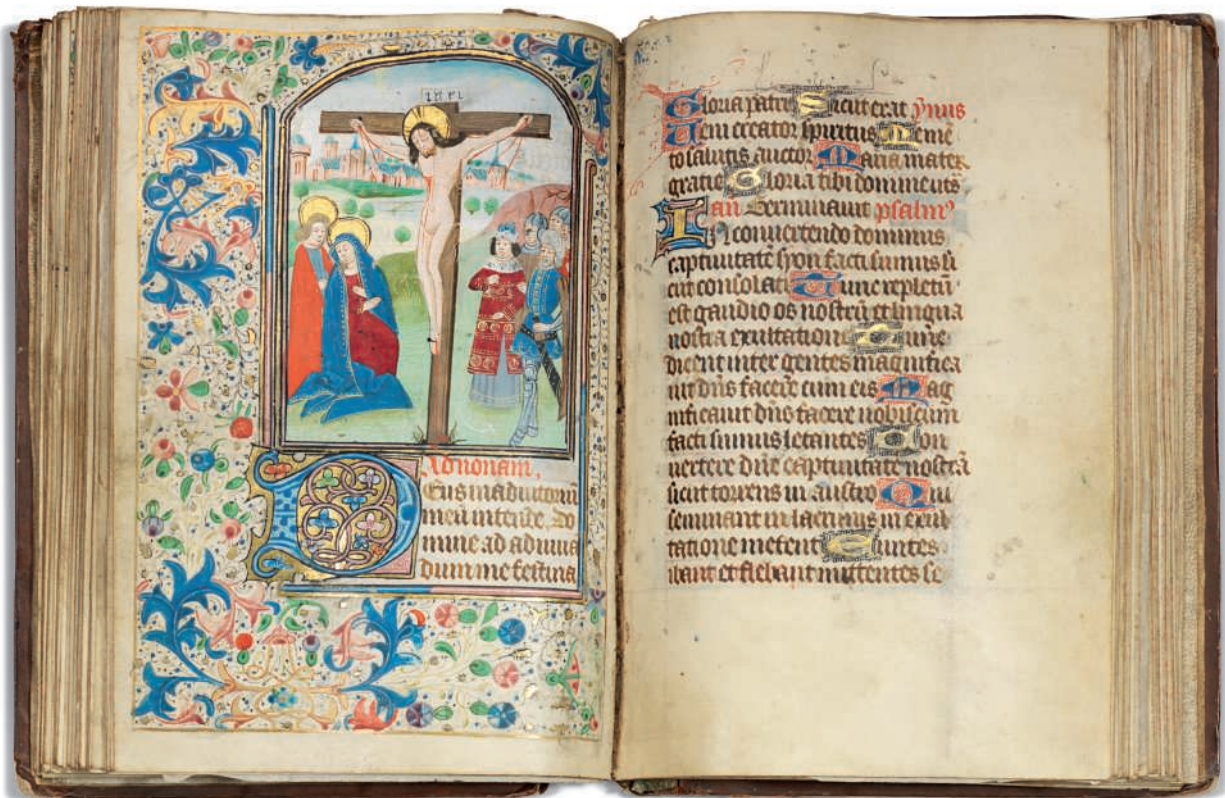 INRI
Ad nonam.
Deus in adiutoriū
meū intende. Do
mine ad adiuua
dum me festina
Gloria patri Sicut erat ymus
Veni creator spiritus Memē
to salutis auctor Maria mater
gratie Gloria tibi domine
an Germinauit psalm⁹
In conuertendo dominus
captiuitatē syon facti sumus si
cut consolati Tunc repletū
est gaudio os nostrū et lingua
nostra exultatione Tunc
dicent inter gentes magnifica
uit dn̄s facere cum eis Mag
nificauit dn̄s facere nobiscum
facti sumus letantes Con
uertere dn̄e captiuitatē nostrā
sicut torrens in austro Qui
seminant in lacrimis in exul
tatione metent Euntes
ibant et flebant mittentes se